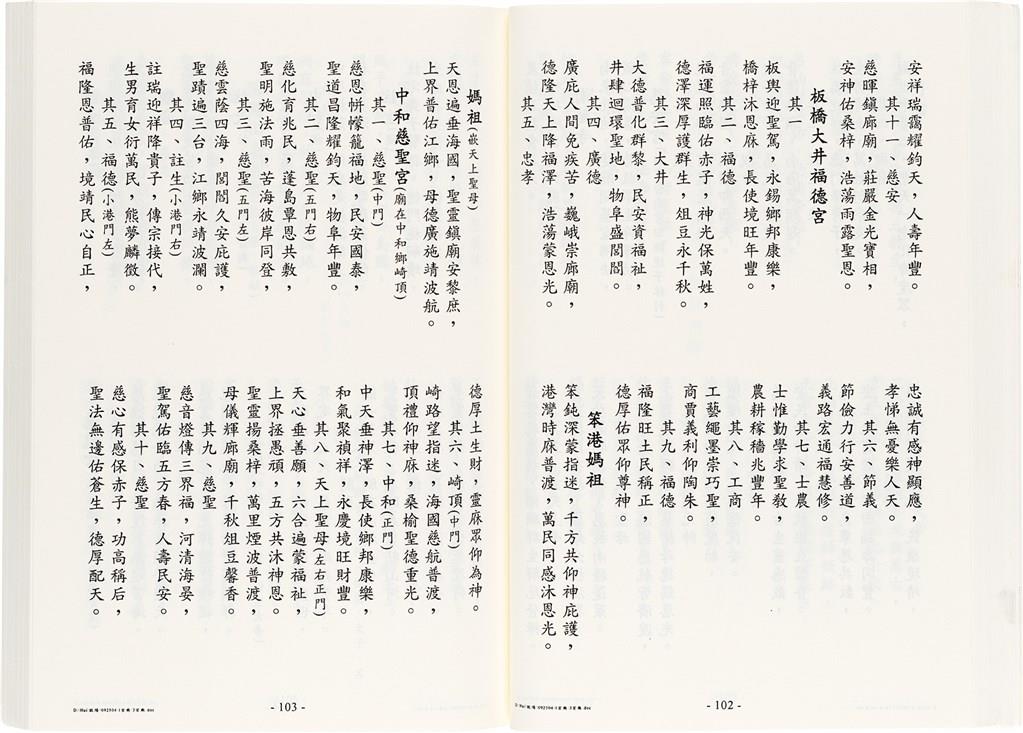 安祥瑞靄耀鈞天，人壽年豐。
其十一、慈安
慈暉鎮廊廟，莊嚴金光寶相，
安神佑桑梓，浩蕩雨露聖恩。
板橋大井福德宮
其一
板輿迎聖駕，永錫鄉邦康樂，
橋梓沐恩庥，長使境旺年豐。
其二、福德
福運照臨佑赤子，神光保萬姓，
德澤深厚護群生，俎豆永千秋。
其三、大井
大德普化群黎，民安資福祉，
井肆迴環聖地，物阜盛閭閻。
其四、廣德
廣庇人間免疾苦，巍峨崇廊廟，
德隆天上降福澤，浩蕩蒙恩光。
其五、忠孝
忠誠有感神顯應，
孝悌無憂樂人天。
其六、節義
節儉力行安善道，
義路宏通福慧修。
其七、士農
士惟勤學求聖教，
農耕稼穡兆豐年。
其八、工商
工藝繩墨崇巧聖，
商賈義利仰陶朱。
其九、福德
福隆旺土民稱正，
德厚佑眾仰尊神。
笨港媽祖
笨鈍深蒙指迷，千方共仰神庇護，
港灣時庥普渡，萬民同感沐恩光。
- 102 -
媽祖(嵌天上聖母)
天恩遍垂海國，聖靈鎮廟安黎庶，
上界普佑江鄉，母德廣施靖波航。
中和慈聖宮(廟在中和鄉崎頂)
其一、慈聖(中門)
慈恩帡幪籠福地，民安國泰，
聖道昌隆耀鈞天，物阜年豐。
其二、慈聖(五門右)
慈化育兆民，蓬島覃恩共敷，
聖明施法雨，苦海彼岸同登，
其三、慈聖(五門左)
慈雲蔭四海，閭閻久安庇護，
聖蹟遍三台，江鄉永靖波瀾。
其四、註生(小港門右)
註瑞迎祥降貴子，傳宗接代，
生男育女衍萬民，熊夢麟徵。
其五、福德(小港門左)
福隆恩普佑，境靖民心自正，
德厚土生財，靈庥眾仰為神。
其六、崎頂(中門)
崎路望指迷，海國慈航普渡，
頂禮仰神庥，桑榆聖德重光。
其七、中和(正門)
中天垂神澤，長使鄉邦康樂，
和氣聚禎祥，永慶境旺財豐。
其八、天上聖母(左右正門)
天心垂善願，六合遍蒙福祉，
上界拯愚頑，五方共沐神恩。
聖靈揚桑梓，萬里煙波普渡，
母儀輝廊廟，千秋俎豆馨香。
其九、慈聖
慈音燈傳三界福，河清海晏，
聖駕佑臨五方春，人壽民安。
其十、慈聖
慈心有感保赤子，功高稱后，
聖法無邊佑蒼生，德厚配天。
- 103 -